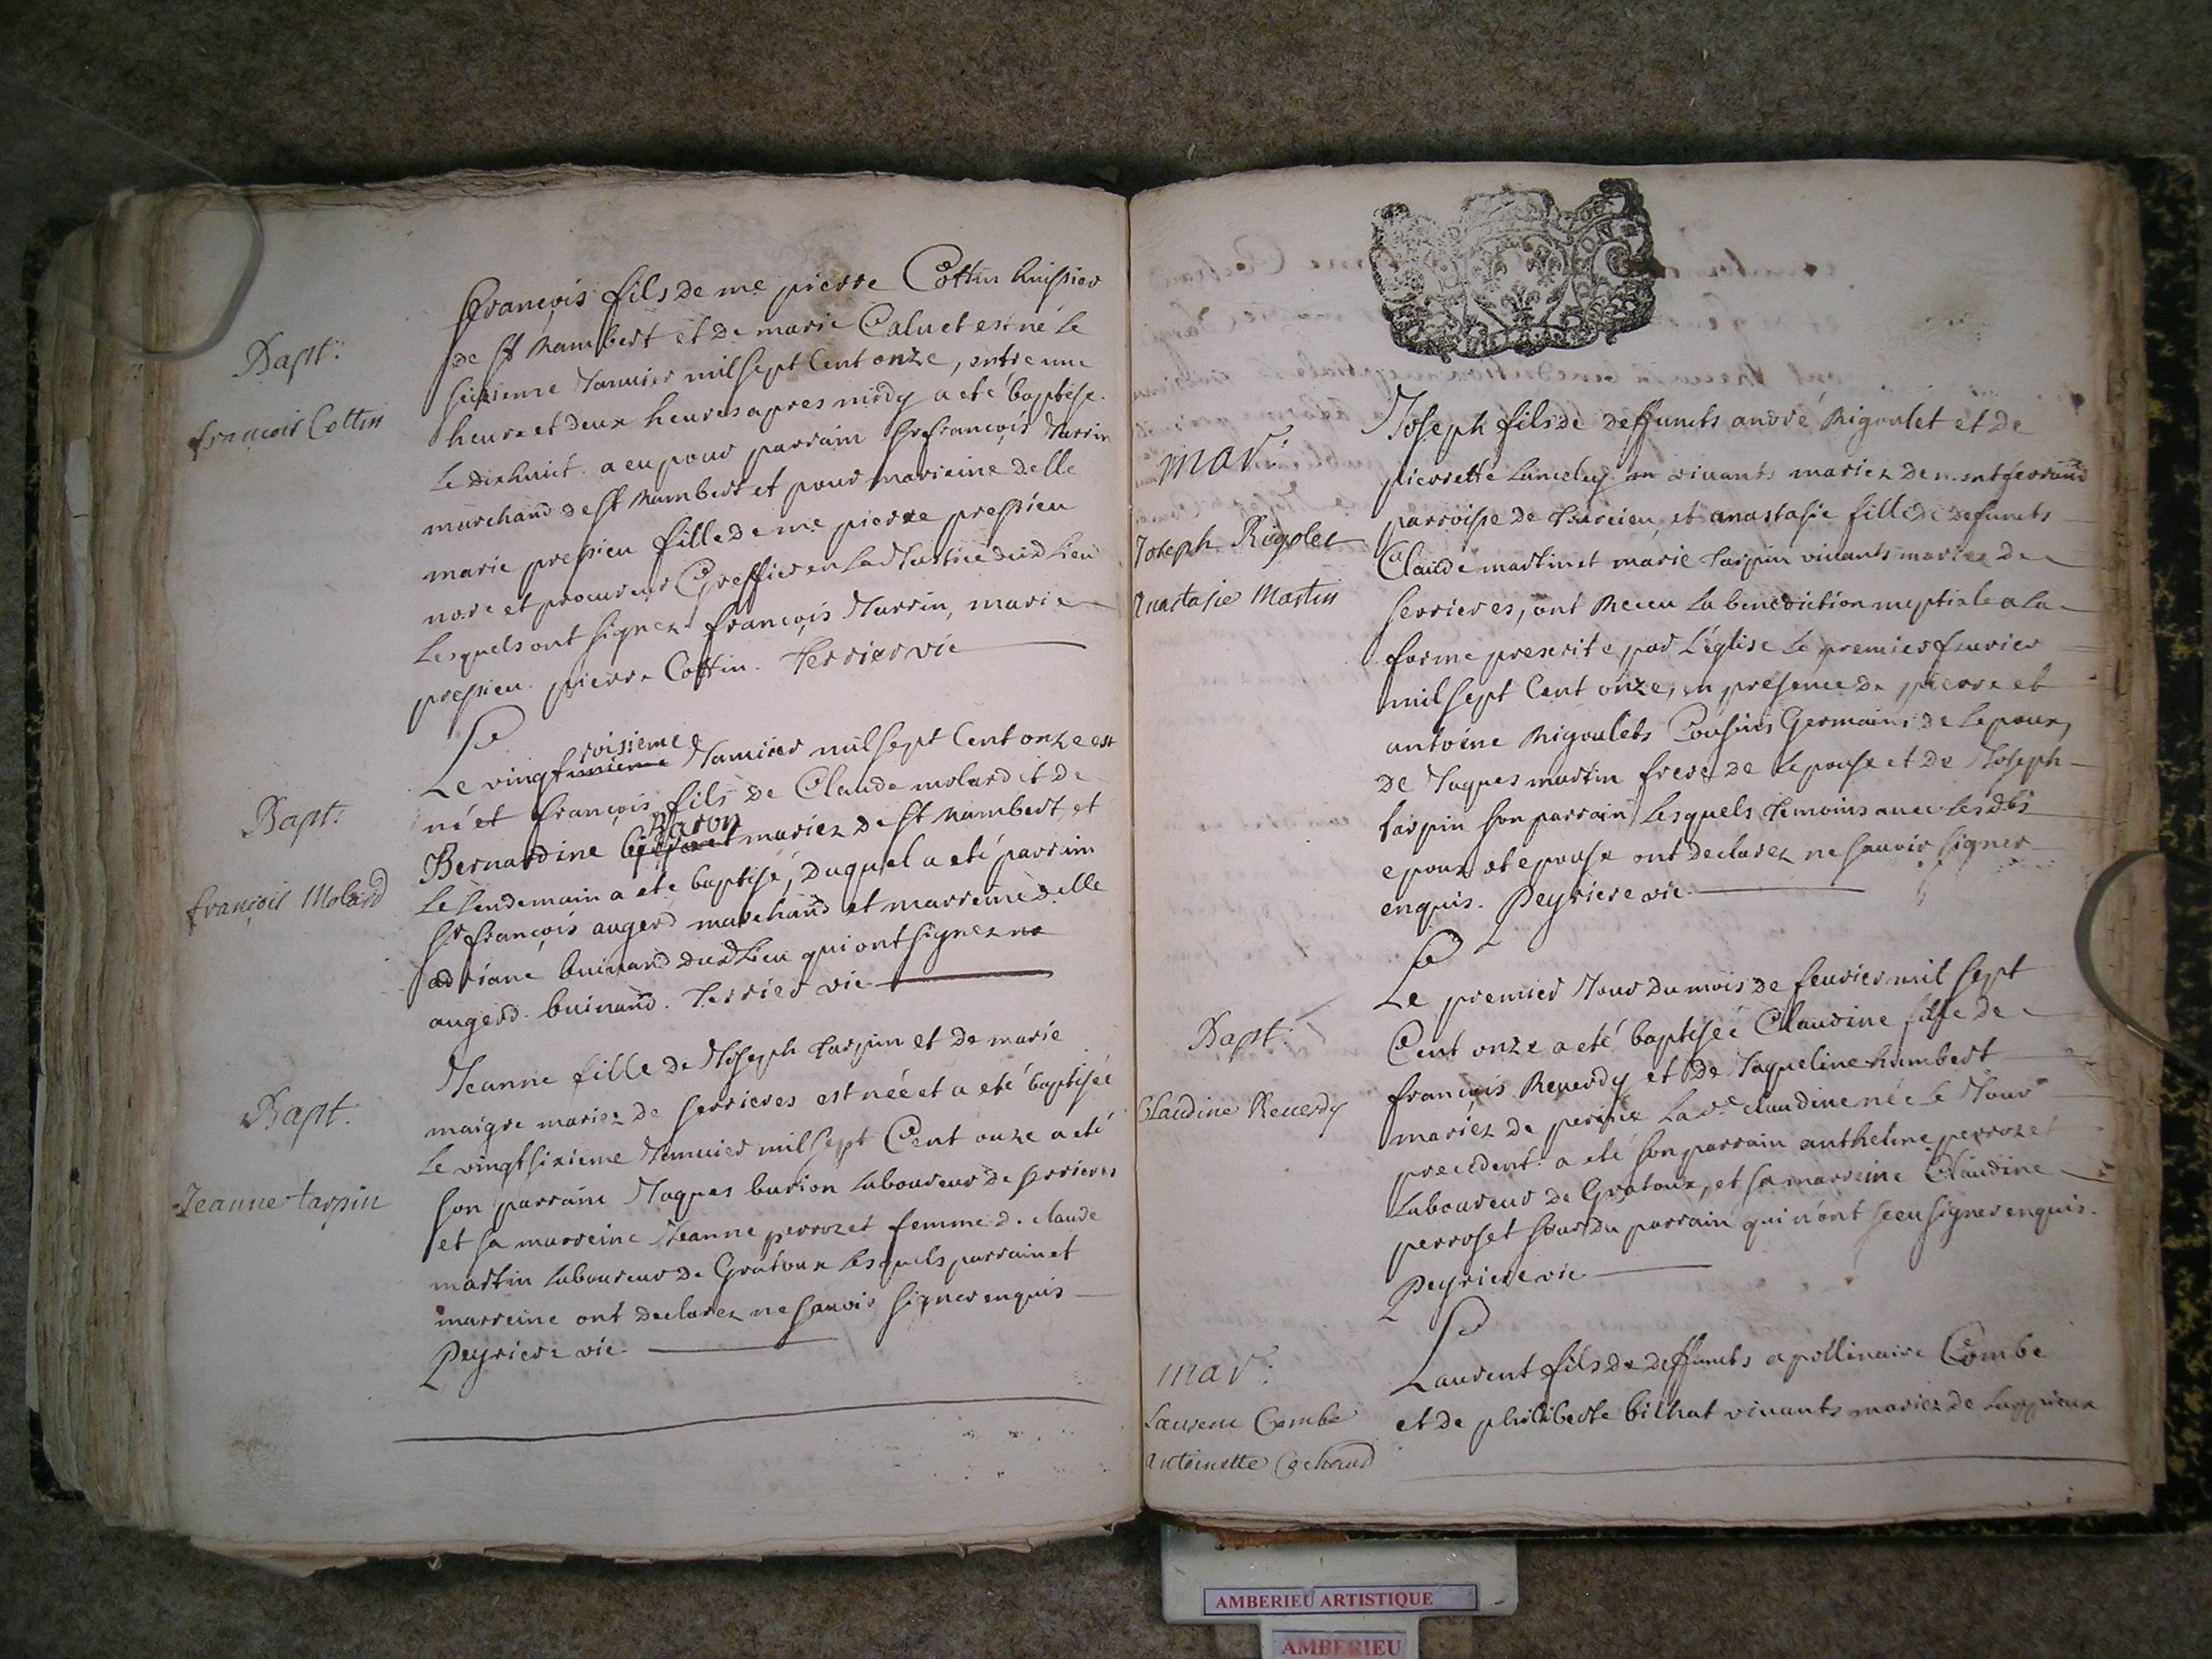 Bapt:
françois Cottin
François fils de me pierre Cottin huissier
de St Rambert et de marie Caluet est né le
sixieme Januier mil sept Cent onze, entre une
heure et deux heures apres midy a eté baptisé
le dixhuict. a eu pour parrain Sr françois Jarrin
marchand de St Rambert et pour marreine delle
marie pressieu fille de me pierre pressieu
nore et procureur Greffier en la Justice dud Lieu
Lesquels ont signez françois Jarrin, marie
pressieu. pierre Cottin. Terrier vic
Bapt:
françois Molard
Le vingt troisieme Januier mil sept Cent onze est
né et françois fils de Claude molard et de
Bernardine Baron mariez de St Rambert, et
le lendemain a ete baptisé, duquel a eté parrain
Sr françois augerd marchand et marreine delle
adriane buinand dud Lieu qui ont signez
augerd. buinand. Terrier vic
Bapt.
Jeanne tarpin
Jeanne fille de Joseph tarpin et de marie
maigre mariez de serrieres est née et a eté baptisée
le vingt sixieme Januier mil sept Cent onze a eté
son parrain Jaques burion laboureur de serrieres
et sa marreine Jeanne perrozet femme d. claude
martin laboureur de Gratoux lesquels parrain et
marreine ont declarez ne sauoir signer enquis
Peyriere vic.
mar:
Joseph Rigolet
Anastasie Martin
Joseph fils de deffuncts andré Rigoulet et de
pierrette vivants mariez de montferrand
parroisse de torcieu, et anastasie fille de defuncts
Claude martin et marie tarpin vivants mariez de
serrieres, ont Receu la benediction nuptiale a la
forme prescrite par L'église le premier feurier
mil sept Cent onze, en presence de pierre et
antoine Rigoulets Cousins Germains de lepoux,
de Jaques martin frere de lepouse et de Joseph
tarpin son parrain Lesquels temoins auec lesdts
epoux et epouse ont declarez ne sauoir signer
enquis. Peyriere vic
Bapt:
Claudine Reuerdy
Le premier Jour du mois de feurier mil sept
Cent onze a eté baptiseé Claudine fille de
françois Reuerdy et de Jaqueline humbert
mariez de La de claudine née le Jour
precedent. a eté son parrain anthelme perrozet
Laboureur de Gratoux, et sa marreine Claudine
perroset sœur du parrain qui n'ont sceu signer enquis.
Peyriere vic
mar:
Laurent Combe
Antoinette Cochaud
Laurent fils de deffuncts apollinaire Combe
et de philiberte bilhat vivants mariez de
AMBERIEU ARTISTIQUE
AMBERIEU